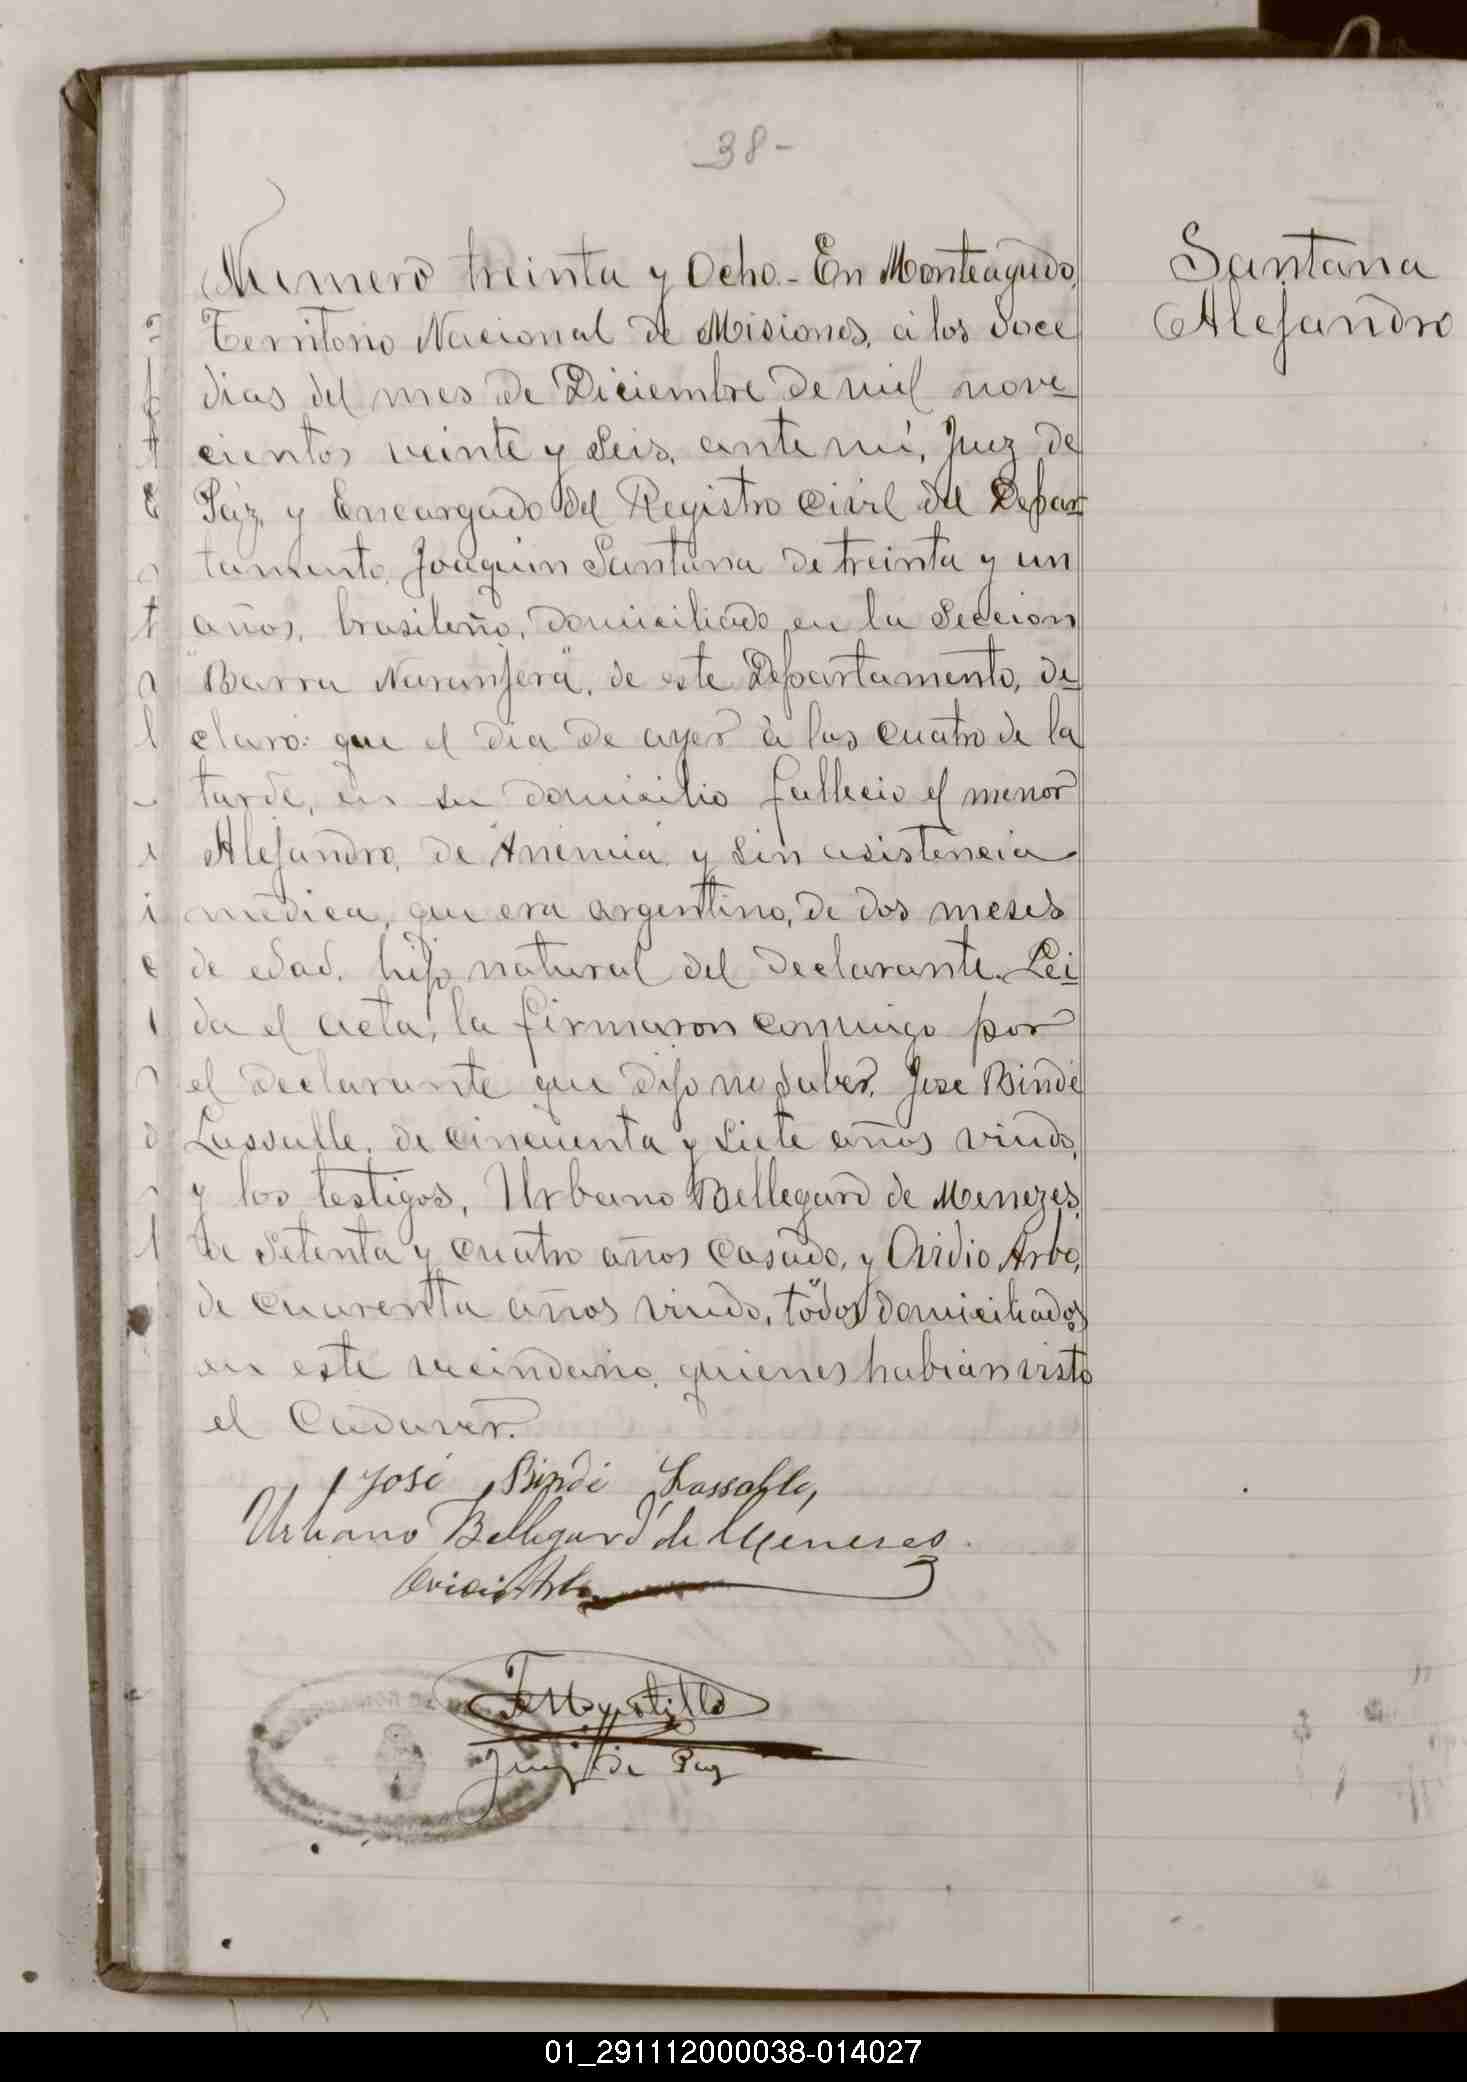 38-
Numero treinta y Ocho.- En Monteagudo,
Santana
Alejandro
Territorio Nacional de Misiones, á los doce
dias del mes de Diciembre de mil nove-
cientos veinte y Seis, ante mí, Juez de
Páz y Encargado del Registro Civil del Depar-
tamento, Joaquin Santana de treinta y un
años, brasileño, domiciliado en la Seccion
"Barra Naranjera", de este Departamento, de-
claró: que el dia de ayer á las cuatro de la
tarde, en su domicilio falleció el menor
Alejandro, de "Anemia" y sin asistencia
médica, que era argentino, de dos meses
de edad, hijo natural del declarante. Lei-
da el acta, la firmaron conmigo por
el declarante que dijo no saber, José Bindé
Lassalle, de cincuenta y siete años viudo,
y los testigos, Urbano Bellegard de Menezes,
de Setenta y cuatro años Casado, y Ovidio Arbo,
de cuarenta años viudo, todos domiciliados
en este vecindario, quienes habian visto
el Cadaver.
José Bindé Lassalle,
Urbano Bellegard de Menezes
Ovidio Arbo
Juez de Paz
01_291112000038-014027